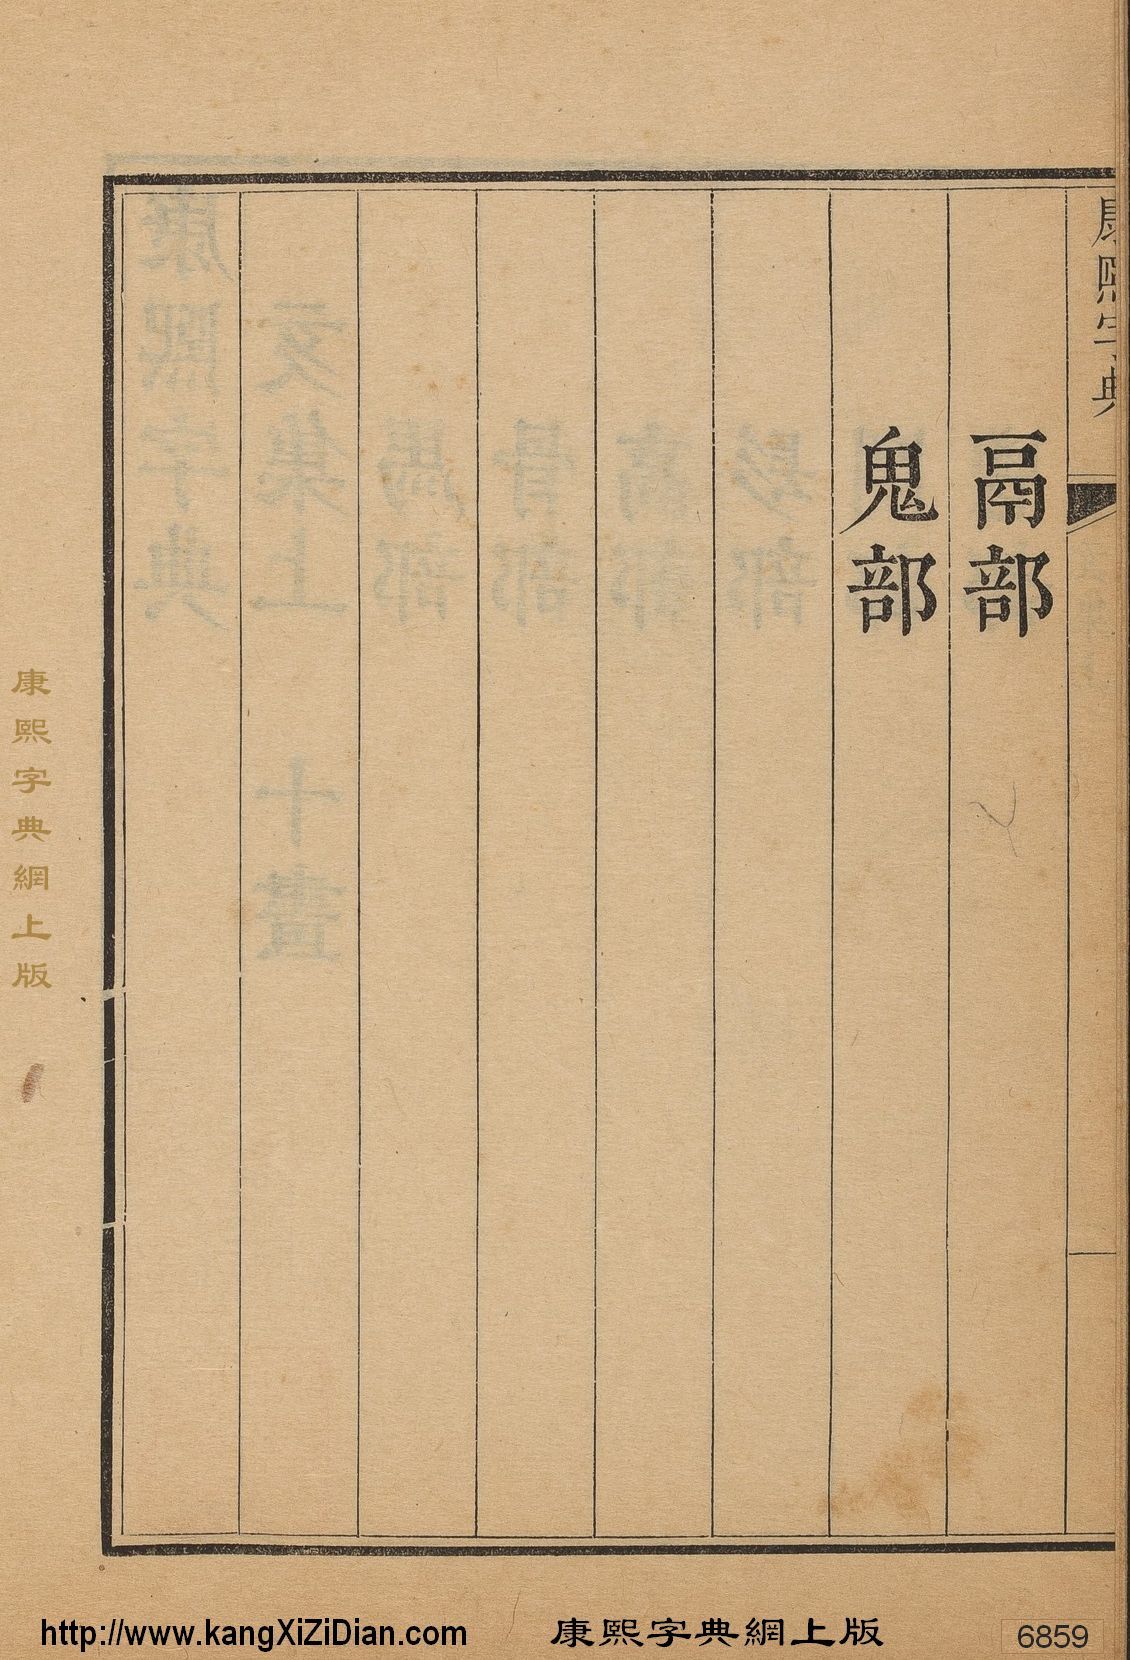 康熙字典
鬲部
鬼部
康熙字典網上版
http://www.kangXiZiDian.com
康熙字典網上版
6859